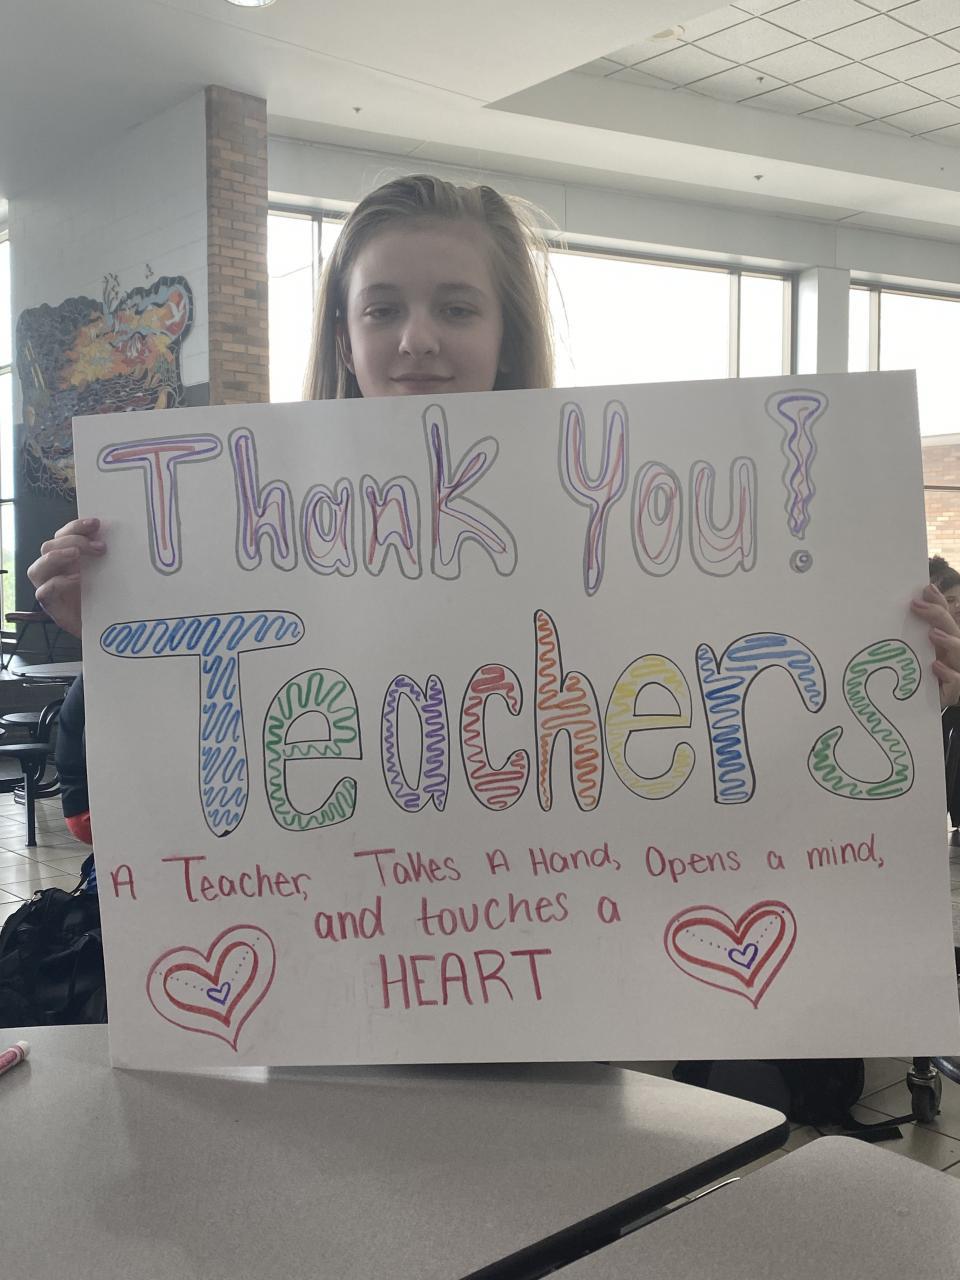 Thank You!
Teachers
A Teacher, Takes A Hand, Opens a mind,
and touches a
HEART